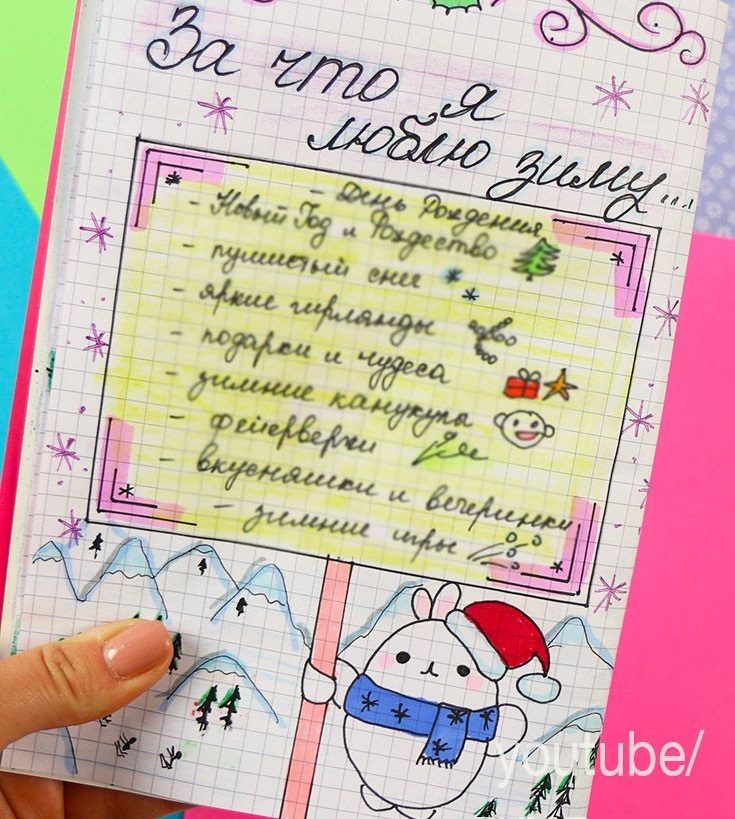 За что я
люблю зиму...
- День Рождения
- Новый Год и Рождество
- пушистый снег
- яркие гирлянды
- подарки и чудеса
- зимние каникулы
- фейерверки
- вкусняшки и вечеринки
- зимние игры
youtube/